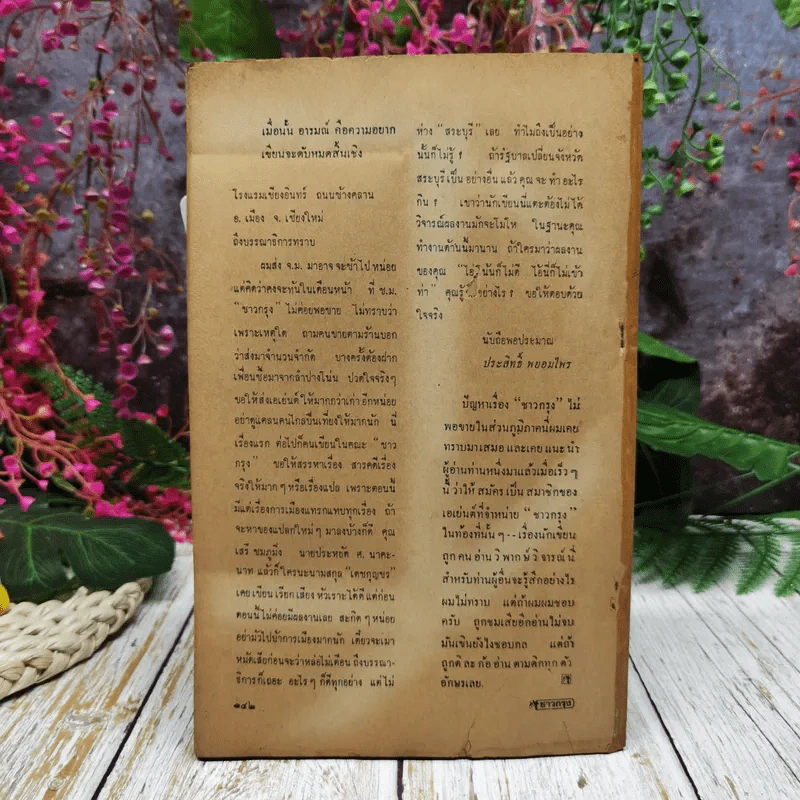 เมื่อนั้น อารมณ์ คือความอยาก
เขียนจะดับหมดสิ้นเชิง
โรงแรมเชียงอินทร์ ถนนช้างคลาน
อ. เมือง จ. เชียงใหม่
ถึงบรรณาธิการทราบ
ผมส่ง จ.ม. มาอาจ จะช้าไป หน่อย
แต่คิดว่าคงจะทันในเดือนหน้า ที่ ช.ม.
“ชาวกรุง” ไม่ค่อยพอขาย ไม่ทราบว่า
เพราะเหตุใด ถามคนขายตามร้านบอก
ว่าส่งมาจำนวนจำกัด บางครั้งต้องฝาก
เพื่อนซื้อมาจากลำปางโน่น ปวดใจจริงๆ
ขอให้ส่งเอเย่นต์ ให้มากกว่าเก่า อีกหน่อย
อย่าดูแคลนคนไกลปืนเที่ยงให้มากนัก นี่
เรื่องแรก ต่อไปก็คนเขียนในคณะ “ชาว
กรุง” ขอให้สรรหาเรื่อง สารคดีเรื่อง
จริงให้มาก ๆ หรือเรื่องแปล เพราะตอนนี้
มีแต่เรื่องการเมืองแทรกแทบทุกเรื่อง ถ้า
จะหาของแปลกใหม่ ๆ มาลงบ้างก็ดี คุณ
เสรี ชมภูมิ่ง นายประหยัด ศ. นาคะ-
นาท แล้วก็ใครนะนามสกุล “เดชกุญชร”
เคย เขียน เรียก เสียง หัวเราะ ได้ดี แต่ก่อน
ตอนนี้ไม่ค่อยมีผลงานเลย สะกิด ๆ หน่อย
อย่ามัวไปบ้าการเมืองมากนัก เดี๋ยวจะเมา
หมัดเสียก่อนจะว่าหล่อไม่เตือน ถึงบรรณา-
ธิการก็เถอะ อะไร ๆ ก็ดีทุกอย่าง แต่ ไม่
๑๔๒
ห่าง “สระบุรี” เลย ทำไมถึงเป็นอย่าง
นั้นก็ไม่รู้ ? ถ้ารัฐบาลเปลี่ยนจังหวัด
สระบุรี เป็น อย่างอื่น แล้ว คุณ จะ ทำ อะไร
กิน ? เขาว่านักเขียนนี่แตะต้องไม่ได้
วิจารณ์ผลงานมักจะโมโห ในฐานะคุณ
ทำงานด้านนี้มานาน ถ้าใครมาว่าผลงาน
ของคุณ “ไอ้นั่นก็ไม่ดี ไอ้นี่ก็ไม่เข้า
ท่า” คุณรู้สึกอย่างไร ? ขอให้ตอบด้วย
ใจจริง
นับถือพอประมาณ
ประสิทธิ์ พยอมไพร
ปัญหาเรื่อง “ชาวกรุง” ไม่
พอขายในส่วนภูมิภาคนี่ผมเคย
ทราบมาเสมอ และเคย แนะ นำ
ผู้อ่านท่านหนึ่งมาแล้วเมื่อเร็ว ๆ
นี้ ว่าให้ สมัคร เป็น สมาชิกของ
เอเย่นต์ที่จำหน่าย “ชาวกรุง”
ในท้องที่นั้น ๆ -- เรื่องนักเขียน
ถูก คน อ่าน วิ พาก ษ์ วิ จารณ์ นี่
สำหรับท่านผู้อื่นจะรู้สึกอย่างไร
ผมไม่ทราบ แต่ถ้าผมผมชอบ
ครับ ถูกชมเสียอีกอ่านไม่จบ
มันเขินยังไงชอบกล แต่ถ้า
ถูกติ ละ ก้อ อ่าน ตามติกทุก ตัว
อักษรเลย.
ชาวกรุง